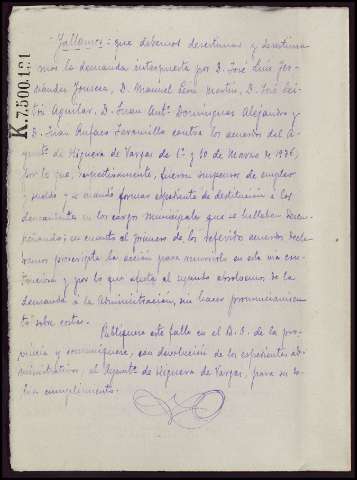 K.7.500.131
Fallamos: que debemos desestimar y desestima-
mos la demanda interpuesta por D. José Luis Fer-
nández Fonseca, D. Manuel León Martín, D. José
Aguilar, D. Juan Antº. Domínguez Alejandro y
D. Juan Rufaco Jaramillo contra los acuerdos del A-
yuntº. de Higuera de Vargas de 1º. y 10 de Marzo de 1936,
por lo que, respectivamente, fueron suspensos de empleo
y sueldo y se mandó formar expediente de destitución a los
demandantes en los cargos municipales que se hallaban desem-
peñando; en cuanto al primero de los referidos acuerdos decla-
ramos prescripta la acción para recurrirlo en esta vía con-
tenciosa y por lo que afecta al segundo absolvemos de la
demanda a la Administración, sin hacer pronunciamien-
to sobre costas.
Publíquese este fallo en el B.O. de la pro-
vincia y comuníquese, con devolución de los expedientes ad-
ministrativos, al Ayuntº. de Higuera de Vargas, para su to-
tal cumplimiento.